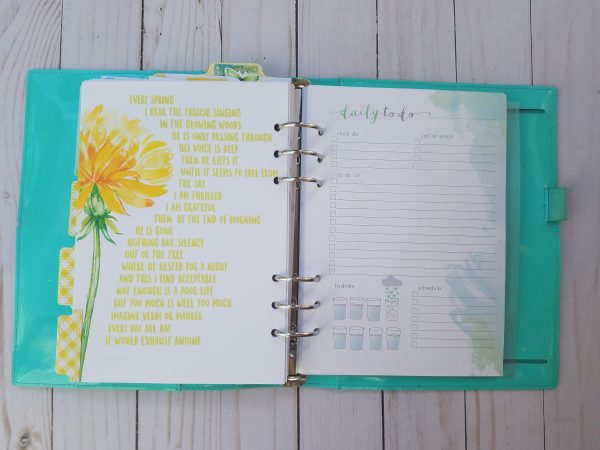 EVERY SPRING
I HEAR THE THRUSH SINGING
IN THE GLOWING WOODS
HE IS ONLY PASSING THROUGH
HIS VOICE IS DEEP
THEN HE LIFTS IT
UNTIL IT SEEMS TO FALL FROM
THE SKY
I AM THRILLED
I AM GRATEFUL
THEN BY THE END OF MORNING
HE IS GONE
NOTHING BUT SILENCE
OUT OF THE TREE
WHERE HE RESTED FOR A NIGHT
AND THIS I FIND ACCEPTABLE
NOT ENOUGH IS A POOR LIFE
BUT TOO MUCH IS WELL TOO MUCH
IMAGINE VERDI OR MAHLER
EVERY DAY ALL DAY
IT WOULD EXHAUST ANYONE
daily to do
must do
call or email
to do list
hydrate
schedule